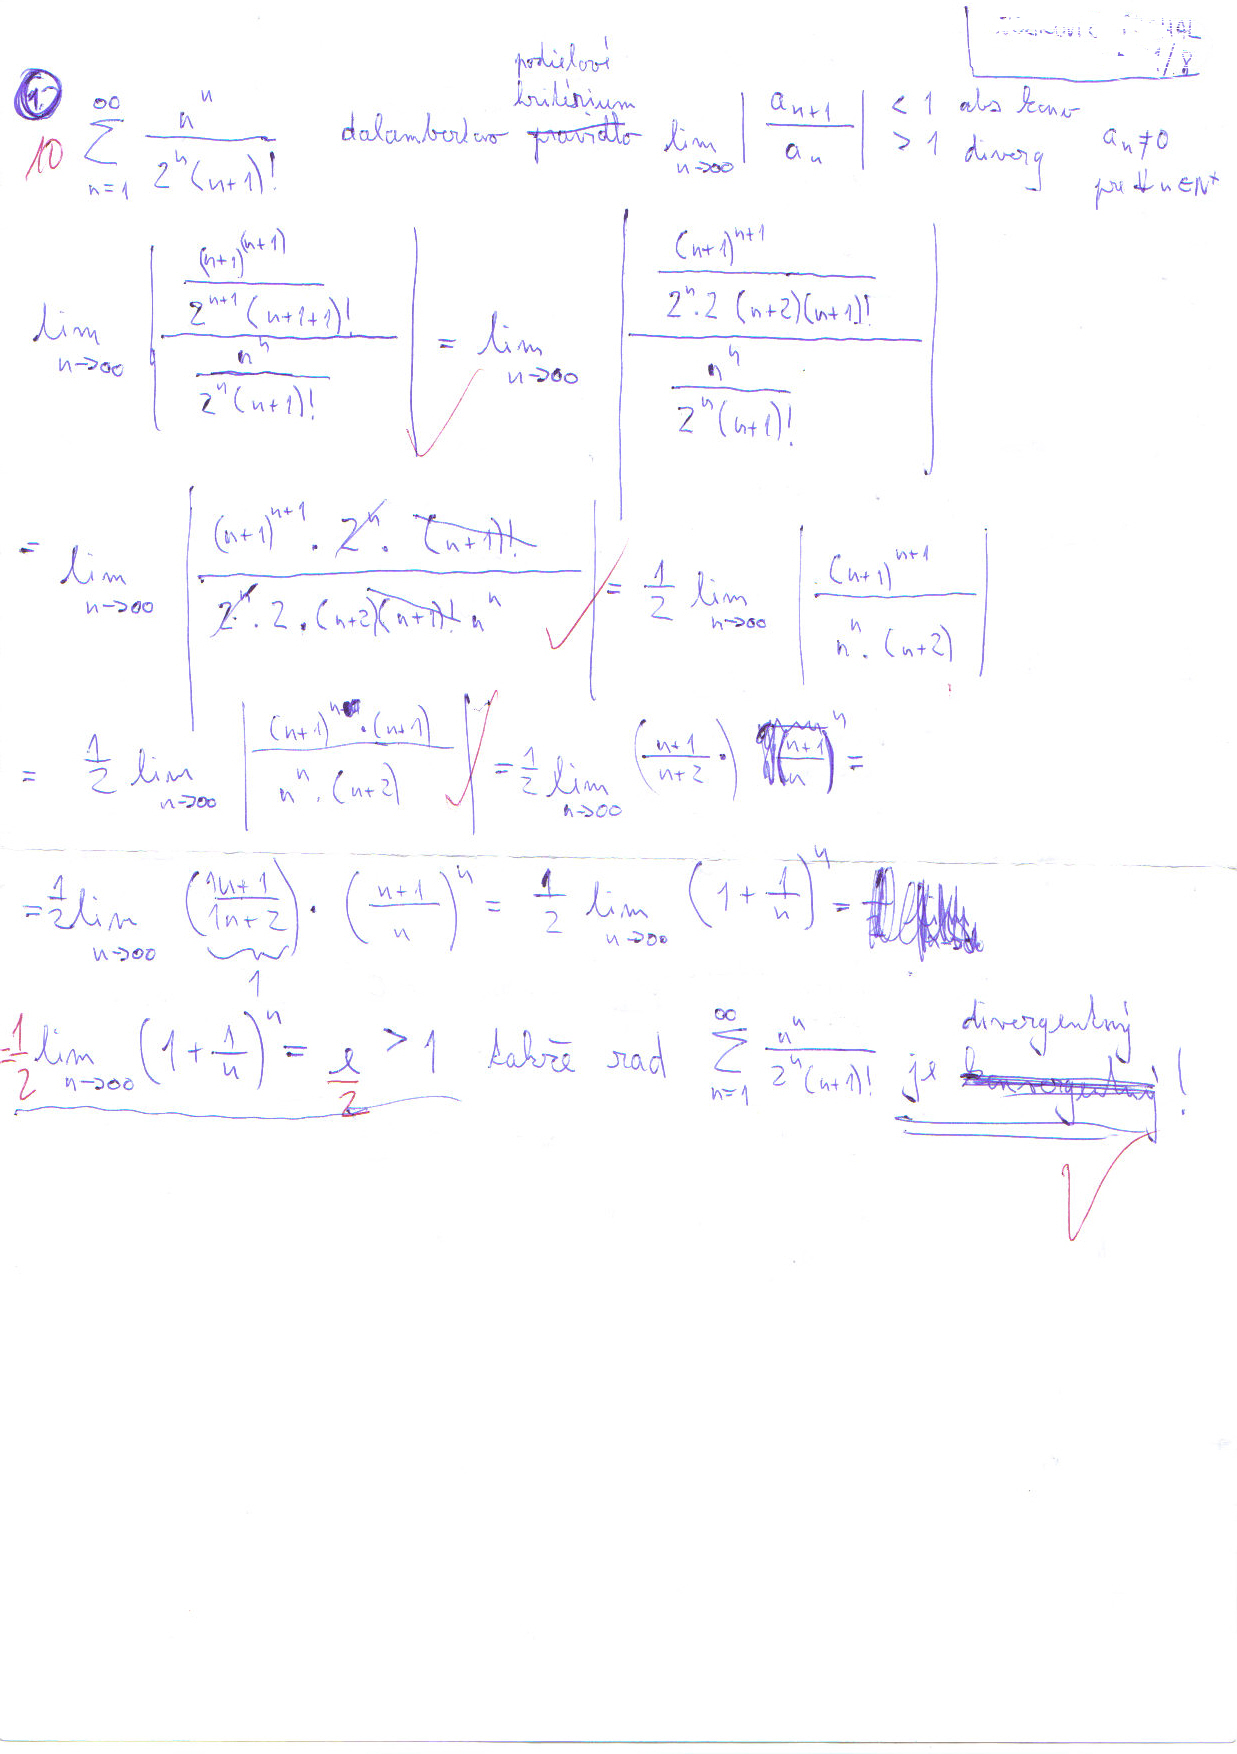 1/8
podielové
kritérium
1. ∑_{n=1}^{∞} n^n / (2^n (n+1)!) dalambertovo pravidlo lim_{n→∞} | a_{n+1} / a_n | < 1 abs konv a_n ≠ 0
10 > 1 diverg pre ∀ n ∈ N^+
lim_{n→∞} | ((n+1)^{(n+1)} / (2^{n+1} (n+1+1)!)) / (n^n / (2^n (n+1)!)) | = lim_{n→∞} | ((n+1)^{n+1} / (2^n . 2 (n+2)(n+1)!)) / (n^n / (2^n (n+1)!)) |
= lim_{n→∞} | ((n+1)^{n+1} . 2^n . (n+1)!) / (2^n . 2 . (n+2)(n+1)! . n^n) | = 1/2 lim_{n→∞} | (n+1)^{n+1} / (n^n . (n+2)) |
= 1/2 lim_{n→∞} | ((n+1)^n . (n+1)) / (n^n . (n+2)) | = 1/2 lim_{n→∞} ((n+1)/(n+2) .) ((n+1)/n)^n =
= 1/2 lim_{n→∞} ((1n+1)/(1n+2)) . ((n+1)/n)^n = 1/2 lim_{n→∞} (1 + 1/n)^n =
1
= 1/2 lim_{n→∞} (1 + 1/n)^n = e/2 > 1 takže rad ∑_{n=1}^{∞} n^n / (2^n (n+1)!) je konvergentný divergentný !